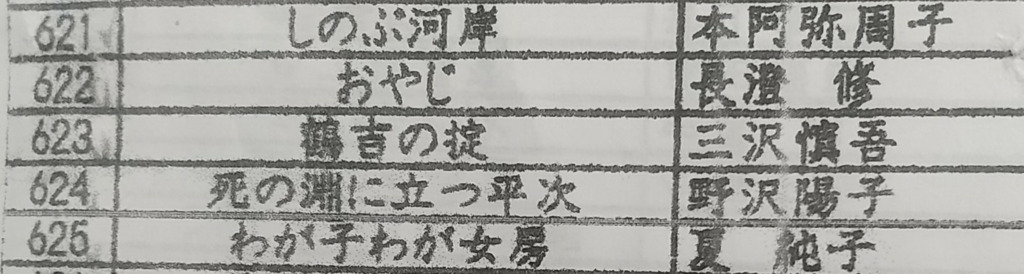 621 しのぶ河岸 本阿弥周子
622 おやじ 長澄 修
623 鶴吉の掟 三沢慎吾
624 死の淵に立つ平次 野沢陽子
625 わが子わが女房 夏 純子